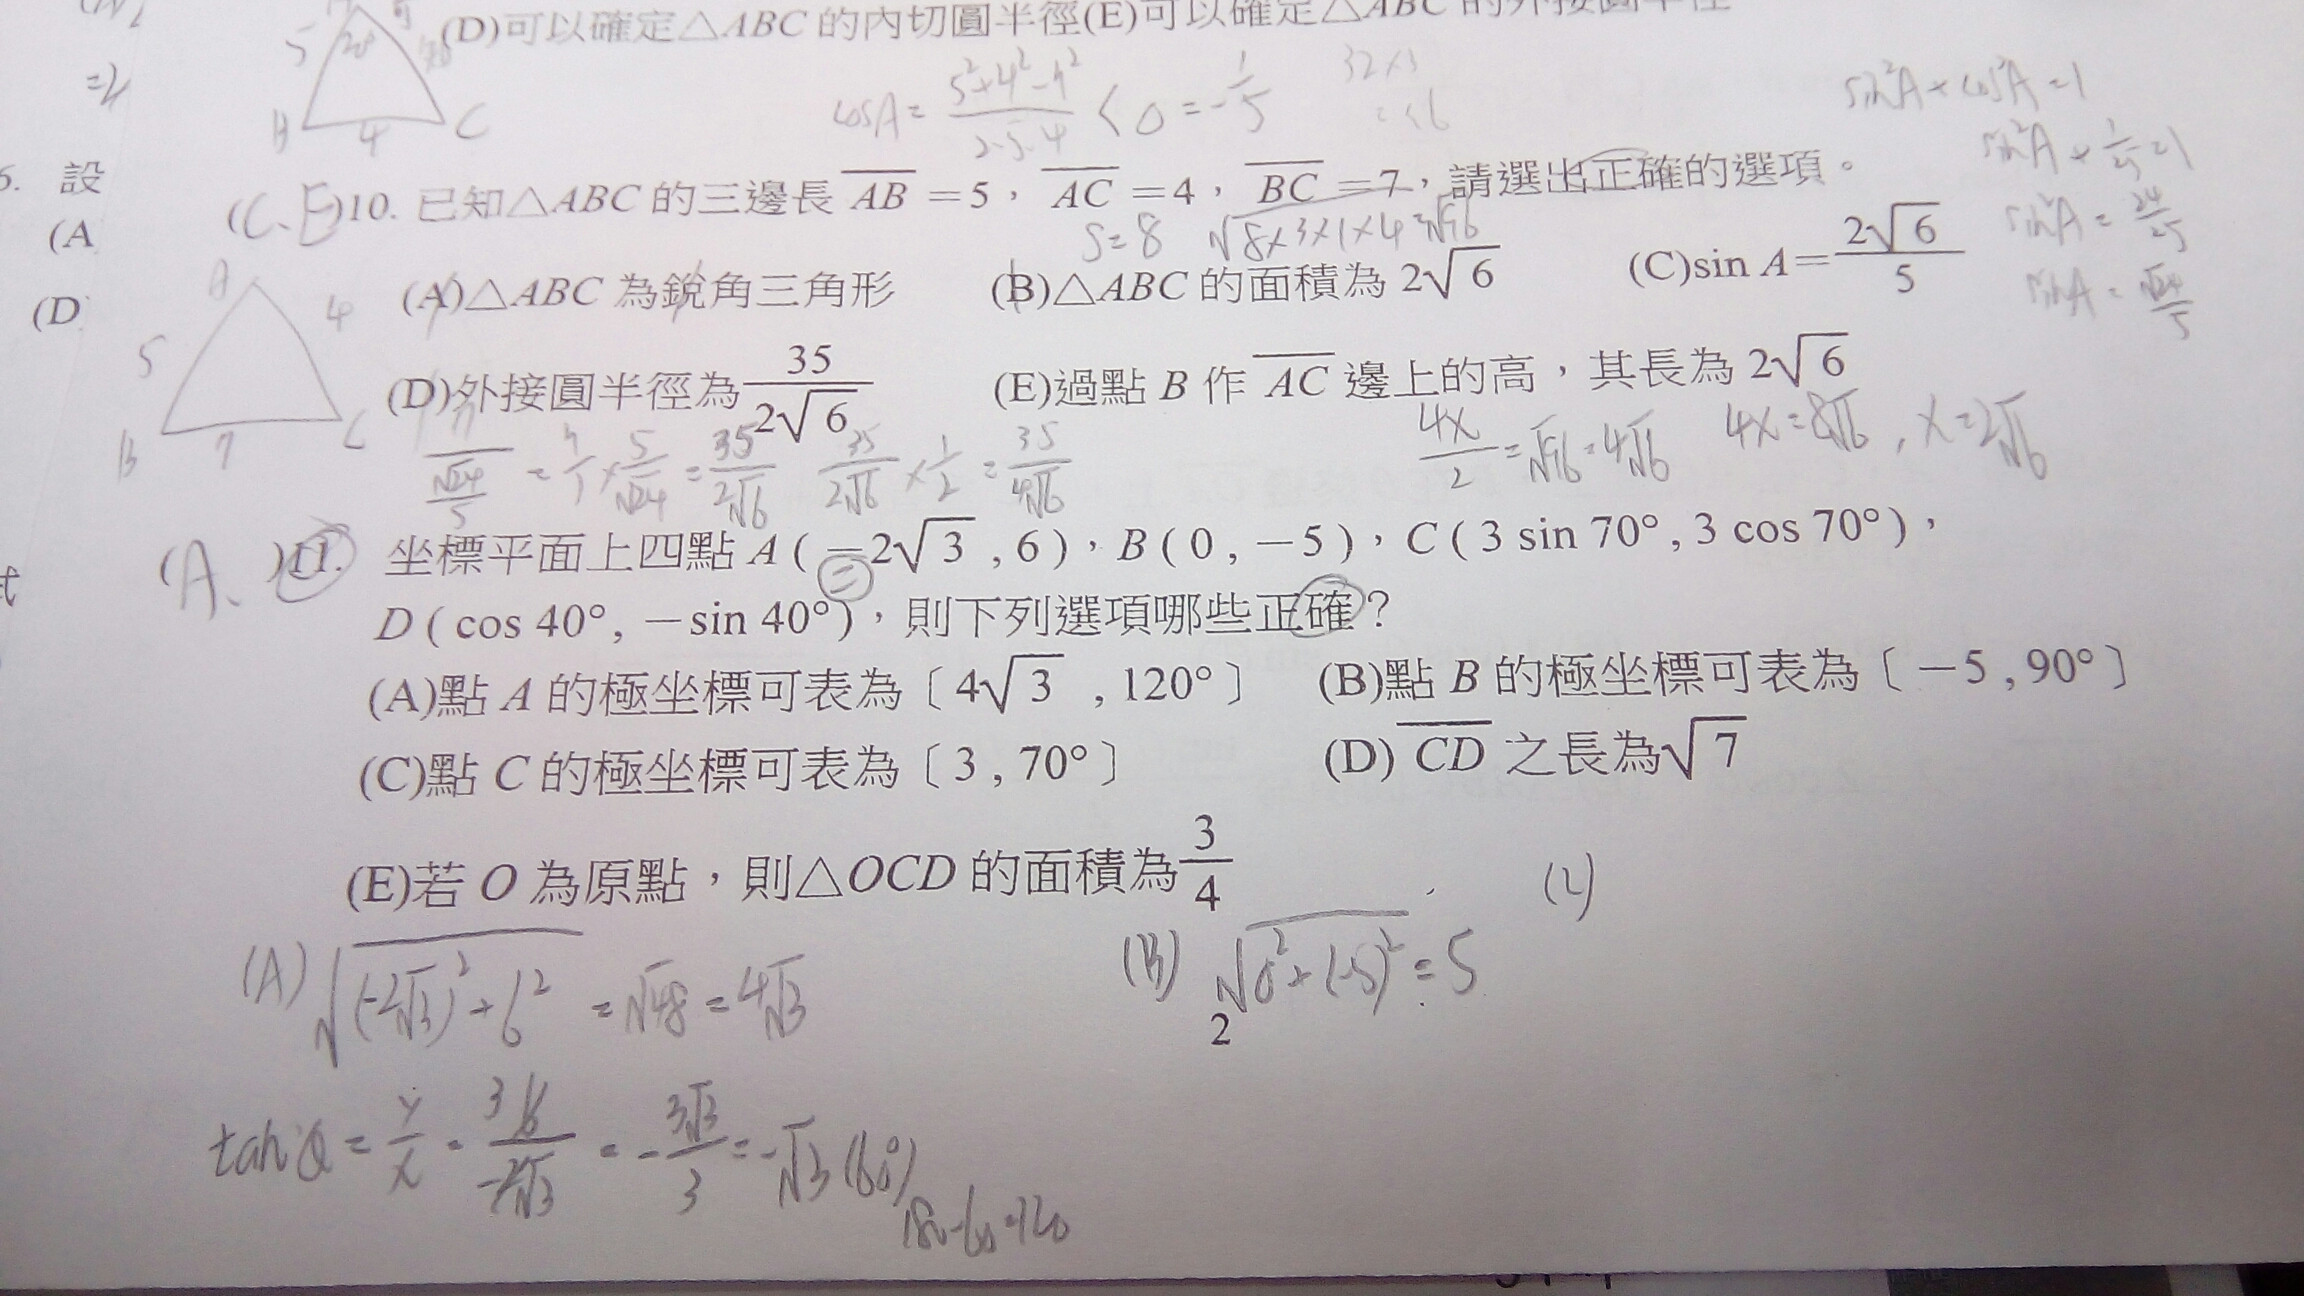 (D)可以確定△ABC 的內切圓半徑(E)可以確定△ABC 的外接圓半徑
5
B 4 C
cosA = (5²+4²-7²)/(2·5·4) < 0 = -1/5
sin²A + cos²A = 1
sin²A + 1/25 = 1
sin²A = 24/25
sinA = √24/5
設
(A
(D
(C、E)10. 已知△ABC 的三邊長 AB =5,AC =4,BC =7,請選出正確的選項。
S=8 √8×3×1×4=√96
(A)△ABC 為銳角三角形 (B)△ABC 的面積為 2√6 (C)sin A=2√6/5
(D)外接圓半徑為 35/2√6 (E)過點 B 作 AC 邊上的高,其長為 2√6
A 4 5 B 7 C
7/(√24/5) = 7/1 × 5/√24 = 35/2√6 35/2√6 × 1/2 = 35/4√6
4x/2 = √96 = 4√6 4x=8√6 , x=2√6
(A、 )11. 坐標平面上四點 A ( −2√3 , 6 ),B ( 0 , −5 ),C ( 3 sin 70° , 3 cos 70° ),
D ( cos 40° , −sin 40° ),則下列選項哪些正確?
(A)點 A 的極坐標可表為〔4√3 , 120°〕 (B)點 B 的極坐標可表為〔−5 , 90°〕
(C)點 C 的極坐標可表為〔3 , 70°〕 (D) CD 之長為√7
(E)若 O 為原點,則△OCD 的面積為 3/4
(A) √(-2√3)²+6² = √48 = 4√3
(B) √0²+(-5)² = 5
2
tanθ = y/x = 6/-2√3 = -3√3/3 = -√3 (60°)
180-60=120